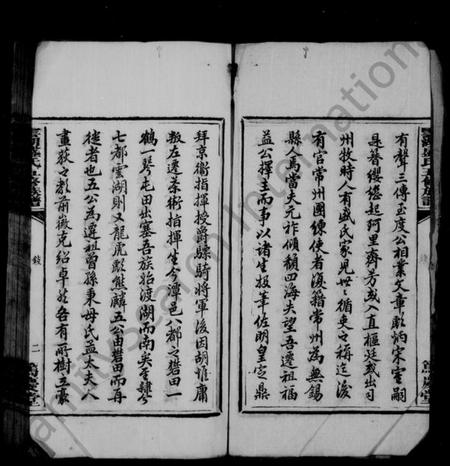 有聲三傳至度公相業文章彪炳宋室嗣
是簪纓繼起阿里齊芳或入直樞廷或出司
州牧時人有盛氏家兒世世循吏之稱迄後
有官常州團練使者復籍常州為無錫
縣人焉當夫元祚傾頹四海失望吾遷祖福
益公擇主而事以諸生投筆佐明皇定鼎
拜京衛指揮授爵驃騎將軍後因胡惟庸
叛左遷茶衛指揮生今潭邑一都之碧田一
鶴一琴屯田出塞吾族始渡湖而南矣至雜公
七都雲湖則又龍虎彪熊麟五公由碧田而再
徙者也五公為遷祖曾孫秉母氏孟太夫人
畫荻之教前徽克紹卓於各有所樹立家
篤慶堂
二